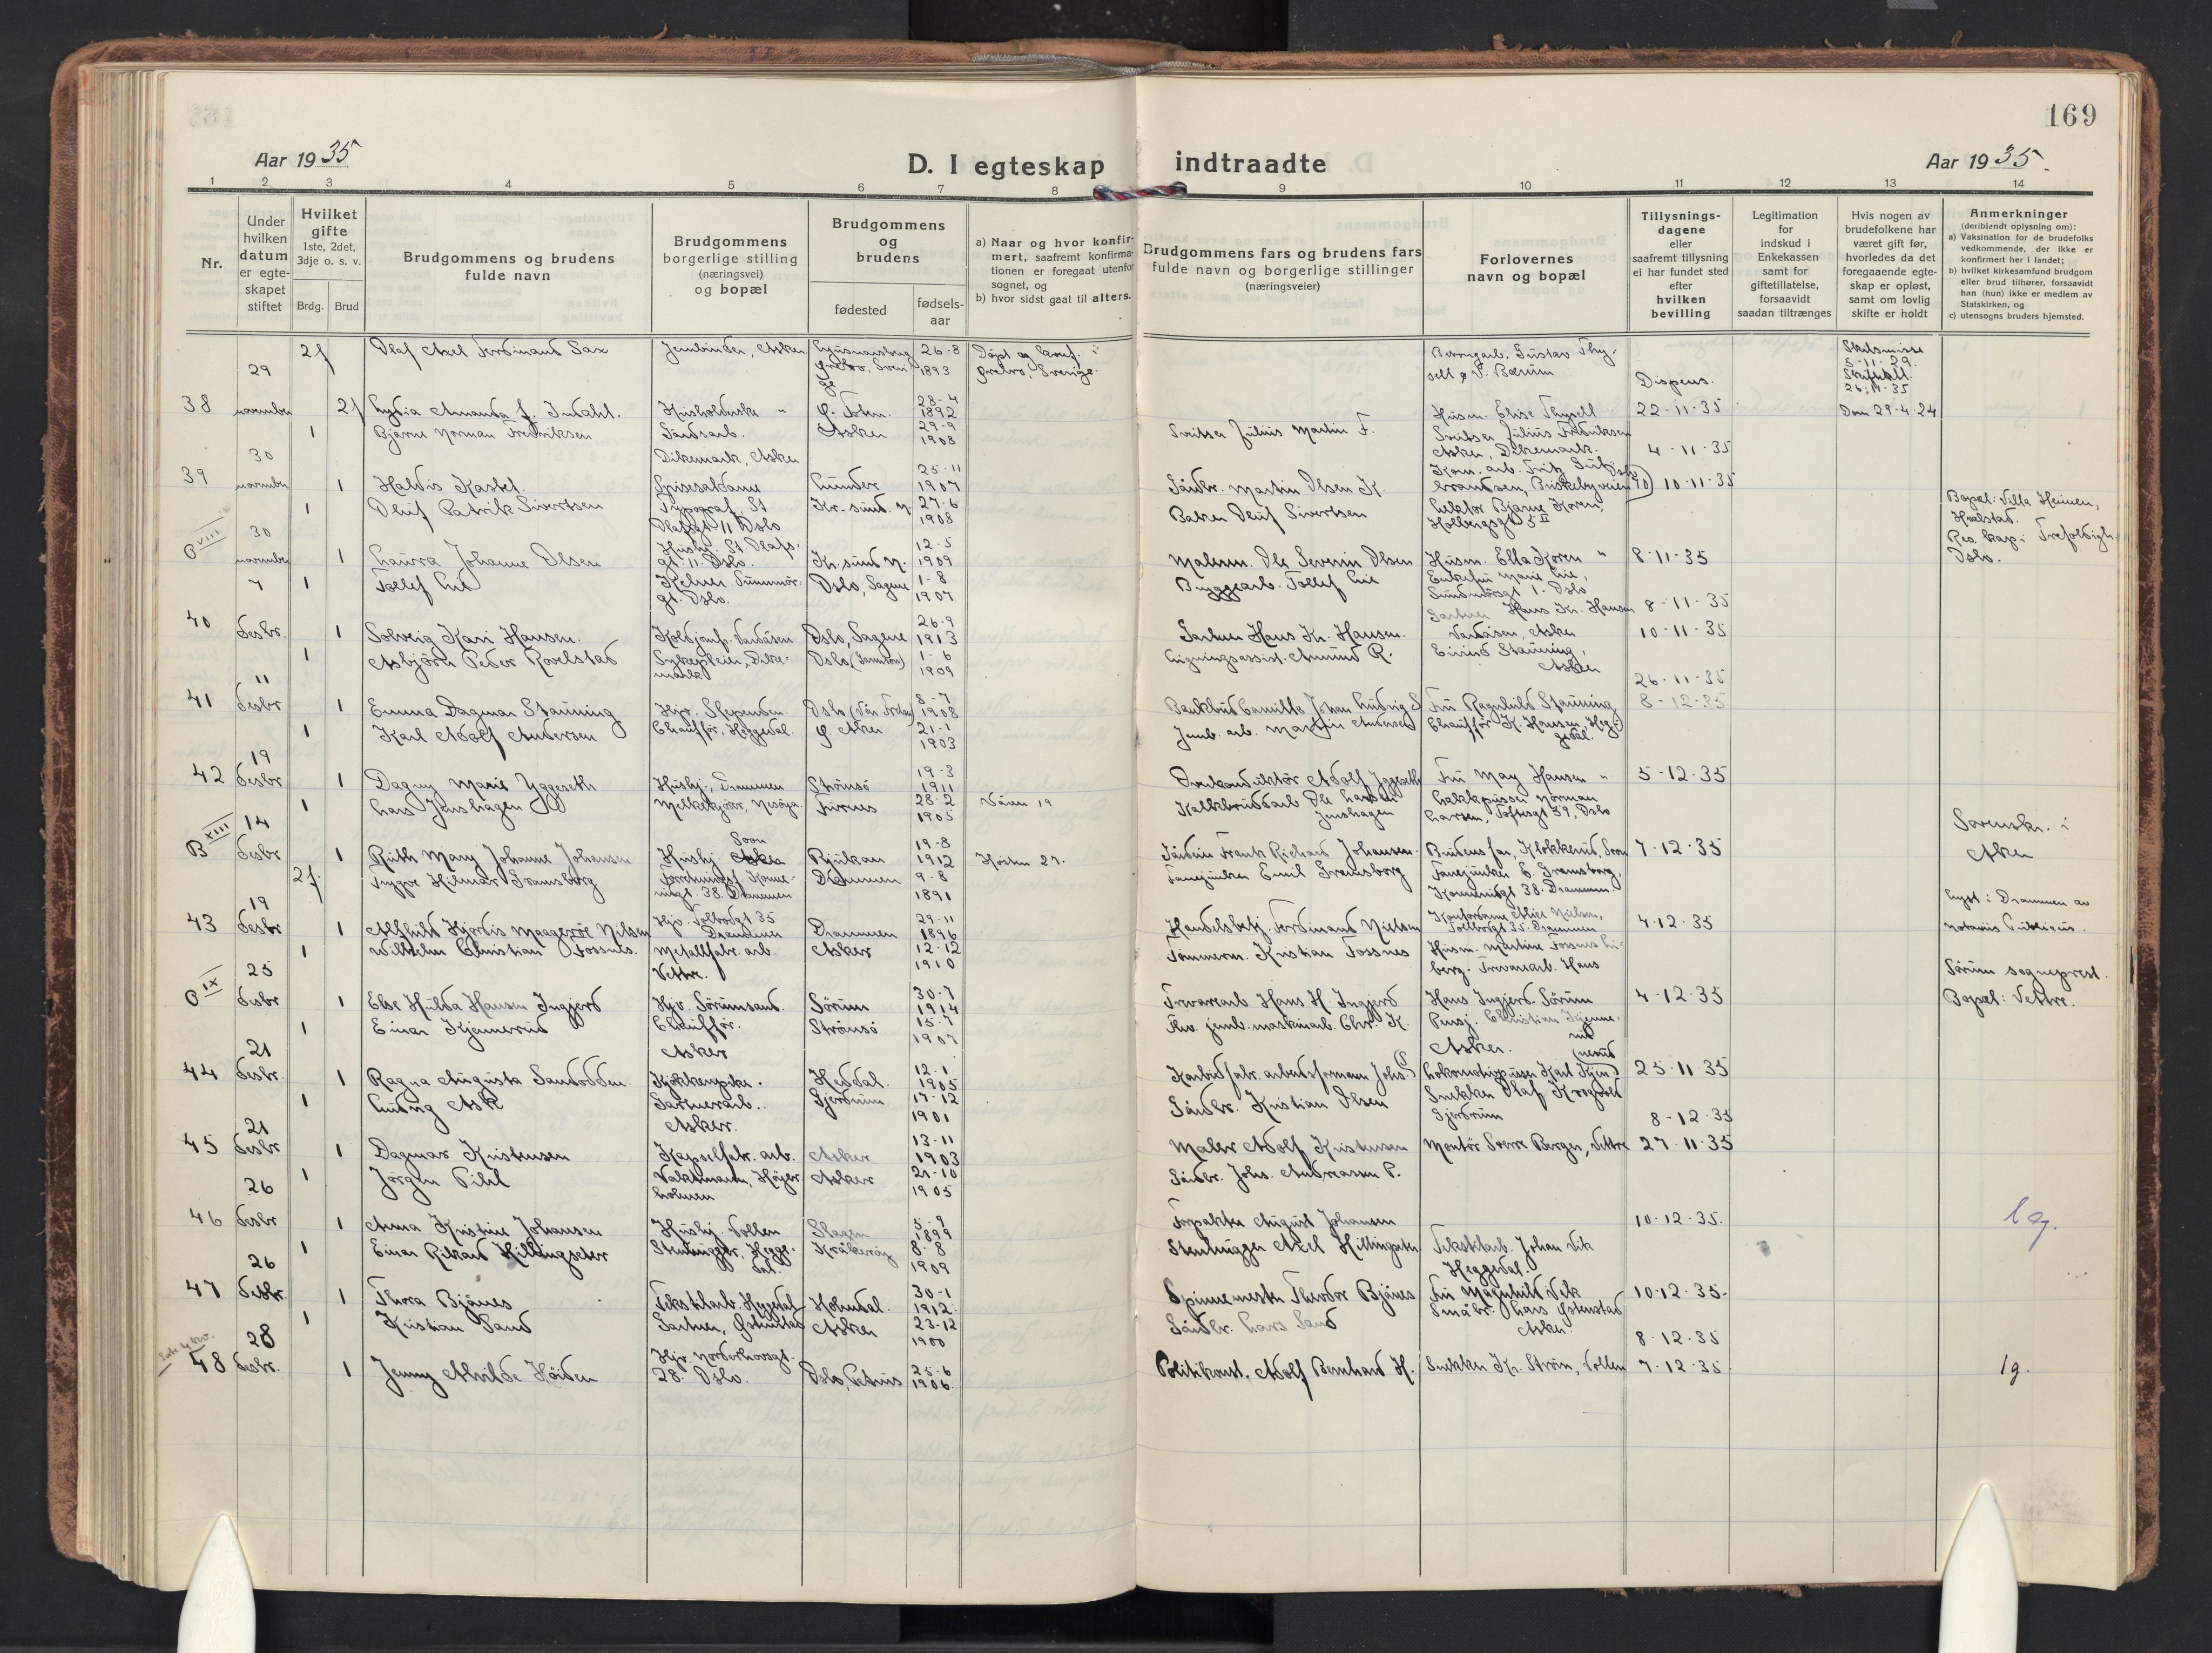 169
Aar 1935
D. I egteskap indtraadte
Aar 1935.
1 2 3 4 5 6 7 8 9 10 11 12 13 14
Nr.
Under hvilken datum er egte-skapet stiftet
Hvilket gifte 1ste, 2det, 3dje o. s. v.
Brdg. Brud
Brudgommens og brudens fulde navn
Brudgommens borgerlige stilling (næringsvei) og bopæl
Brudgommens og brudens
fødested
fødsels-aar
a) Naar og hvor konfir-mert, saafremt konfirma-tionen er foregaat utenfor sognet, og
b) hvor sidst gaat til alters.
Brudgommens fars og brudens fars fulde navn og borgerlige stillinger (næringsveier)
Forlovernes navn og bopæl
Tillysnings-dagene eller saafremt tillysning ei har fundet sted efter hvilken bevilling
Legitimation for indskud i Enkekassen samt for giftetillatelse, forsaavidt saadan tiltrænges
Hvis nogen av brudefolkene har været gift før, hvorledes da det foregaaende egte-skap er opløst, samt om lovlig skifte er holdt
Anmerkninger (deriblandt oplysning om):
a) Vaksination for de brudefolks vedkommende, der ikke er konfirmert her i landet;
b) hvilket kirkesamfund brudgom eller brud tilhører, forsaavidt han (hun) ikke er medlem av Statskirken, og
c) utensogns bruders hjemsted.
29 2f Olaf Axel Ferdinand Sax Jernbinder, Asker 26-8 1893 Døpt og konf. i Ørebro, Sverige. Gustav Thysell, V. Bærum Dispens. 5-11-29. 26-11-35
38 november 2f Lydia Amanda f. Indahl. Husholderske " Ø. Toten. 28-4 1892 Husm. Elise Thysell 22-11-35 Dom 29-4-24
30 1 Bjarne Norman Fredriksen Gårdsarb. Dikemark, Asker Asker 29-9 1908 Sveitser Julius Martin F. Sveitser Julius Fredriksen Asker, Dikemark. 4-11-35
39 november 1 Haldis Kastet. Lunder 25-11 1907 Gårdbr. Martin Olsen K. 10-11-35
30 1 Oluf Patrik Sivertsen Typograf, St Olafsgt 11 Oslo Kr. sund. N. 27-6 1908 Baker Oluf Sivertsen Lektor Bjarne Koren, Holbergsgt 5 II Bopæl: Villa Heimen, Hvalstad.
O VIII november 1 Laura Johanne Olsen Husbj. St Olafs-gt. 11. Oslo. Kr. sund N. 12-5 1909 Malerm. Ole Severin Olsen Husm. Ella Koren " 8-11-35 Res. kap. i Trefoldigh. Oslo.
7 1 Tollef Lie Kelner. Oslo, Sagene 1-8 1907 Byggearb. Tollef Lie Enkefru Marie Lie, Oslo 8-11-35
40 desbr. 1 Solveig Kari Hansen. Vardåsen Oslo, Sagene 26-9 1913 Gartner Hans Kr. Hansen. Gartner Hans Kr. Hansen Vardåsen, Asker 10-11-35
11 1 Asbjørn Peder Rovelstad Sykepleier, Dike-mark 1-6 1909 Ligningsassist. Amund R. Eivind Stauning, Asker 26-11-35
41 desbr 1 Emma Dagmar Stauning Hjv. Slependen. 8-7 1908 Fru Ragnhild Stauning 8-12-35
19 1 Karl Adolf Andersen Chauffør, Heggedal. Ø. Asker 21-1 1903 Jernb. arb. Martin Andersen Chauffør K. Hansen, Heg-gedal.
42 desbr 1 Dagny Marie Yggeseth Husbj., Drammen Strømsø 19-3 1911 Adolf Yggeseth Fru May Hansen " 5-12-35
14 1 Lars Jenshagen Melkekjører, Nesøya. Furnes 28-2 1905 Våler 19 Ole Larsen Jenshagen Norman Larsen, Toftesgt 39, Oslo Sorenskr. i Asker
B XIII desbr 1 Ruth Mary Johanne Johansen Husbj. Soon Rjukan 19-8 1912 Horten 27. Frank Richard Johansen. Brudens far, Klokkerud, Soon 7-12-35
19 2f. Trygve Hilmar Gramsborg 38. Drammen Drammen 9-8 1891 Fanejunker Emil Gramsborg Fanejunker E. Gramsborg, 38. Drammen. Lyst i Drammen av
43 desbr 1 Alfhild Hjørdis Maagerøe Nilsen Hjv. Tolbodgt 35 Drammen Drammen 29-11 1896 Handelsbetj. Ferdinand Nielsen Kontordame Alice Nielsen, Tolbodgt 35. Drammen 4-12-35 notarius Publicus.
25 1 Wilhelm Christian Fossnes. Metallfabr. arb. Vettre. Asker 12-12 1910 Tømmerm. Kristian Fossnes Husm. Martine Fossnes Sørum sogneprest.
O IX desbr 1 Else Hulda Hansen Ingjerd Hjv. Sørumsand. Sørum 30-7 1914 Trevarearb. Hans H. Ingjerd Hans Ingjerd. Sørum 4-12-35 Bopæl: Vettre.
21 1 Einar Kjennerud Chauffør. Asker Strømsø 15-7 1907 Chr. K. Pensj. Christian Kjenne-rud Asker.
44 desbr. 1 Ragna Augusta Sandodden. Kjøkkenpike. Heddal. 12-1 1905 Karbidfabr. arbeidsformann Johs. S Lokomotivpusser Karl Kjennerud 25-11-35
21 1 Ludvig Ask Gartnerarb. Asker. Gjerdrum 17-12 1901 Gårdbr. Kristian Olsen Snekker Olaf Krogvold Gjerdrum 8-12-35
45 desbr 1 Dagmar Kristensen Kapselfabr. arb. Asker 13-11 1903 Maler Adolf Kristensen Montør Sverre Berger, Vettre 27-11-35
26 1 Jørgen Pihl Vaktmann, Asker 21-10 1905 Gårdbr. Johs. Andreassen P.
46 desbr 1 Anna Kristine Johansen Husbj. Vollen Slagen 5-9 1899 Forpakter August Johansen 10-12-35. lg.
26 1 Einar Rikard Hillingseter Stenhugger, Hegge-dal. Kråkerøy 8-8 1909 Stenhugger Axel Hillingseter Tekstilarb. Johan Vik Heggedal.
47 desbr. 1 Thora Bjånes Tekstilarb. Heggedal Holmedal. 30-1 1912. Spinnemester Theodor Bjånes Fru Magnhild Vik 10-12-35-
28 1 Kristian Sand Gartner, Østenstad Asker 23-12 1900 Gårdbr. Lars Sand Småbr. Lars Østenstad Asker. 8-12-35
48 desbr. 1 Jenny Alvilde Høiden Hjv. Norderhovsgt. 28. Oslo. Oslo, Petrus 25-6 1906. Politikonst. Adolf Bernhard H. Snekker Kr. Strøm, Vollen 7-12-35 lg.